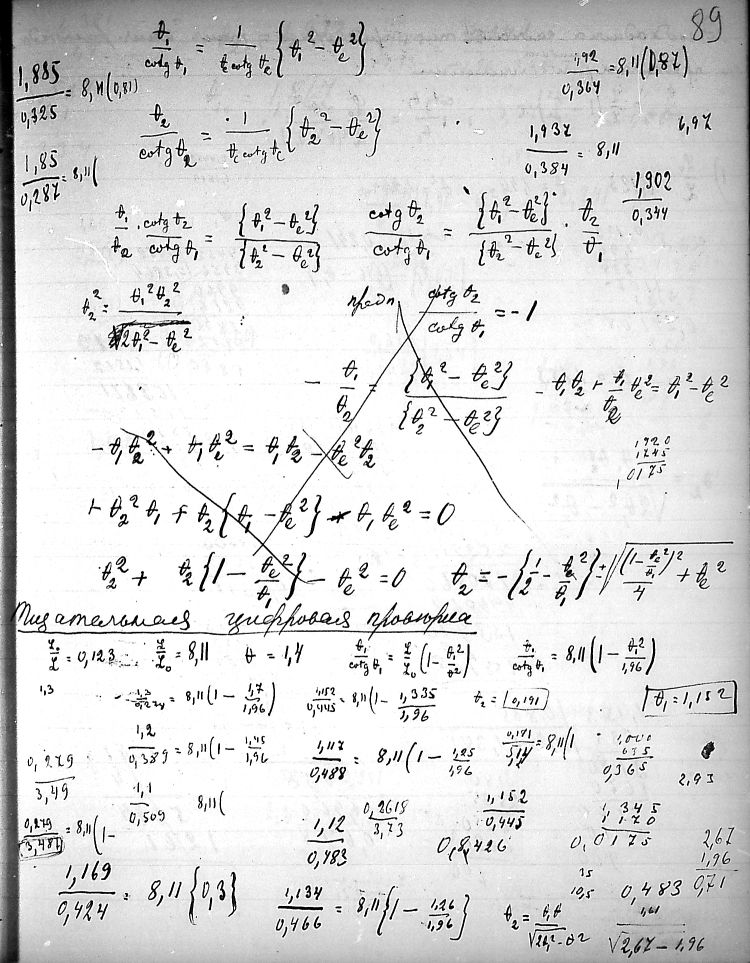 89
ϑ₁/cotg ϑ₁ = 1/(ϑe cotg ϑe) {ϑ₁² − ϑe²}
1,92/0,364 = 8,11(0,87)
1,835/0,325 = 8,11(0,81)
ϑ₂/cotg ϑ₂ = 1/(ϑe cotg ϑe) {ϑ₂² − ϑe²}
1,937/0,384 = 8,11
6,97
1,85/0,287 = 8,11(
1,902/0,344
ϑ₁/ϑ₂ · cotg ϑ₂/cotg ϑ₁ = {ϑ₁² − ϑe²}/{ϑ₂² − ϑe²}
cotg ϑ₂/cotg ϑ₁ = {ϑ₁² − ϑe²}/{ϑ₂² − ϑe²} · ϑ₂/ϑ₁
ϑ₂² = ϑ₁²ϑ₂²/(2ϑ₁² − ϑe²)
предп cotg ϑ₂/cotg ϑ₁ = −1
− ϑ₁/ϑ₂ = {ϑ₁² − ϑe²}/{ϑ₂² − ϑe²}
− ϑ₁ϑ₂ + ϑ₁/ϑ₂ ϑe² = ϑ₁² − ϑe²
− ϑ₁ϑ₂² + ϑ₁ϑe² = ϑ₁²ϑ₂ − ϑe²ϑ₂
1,920
1,745
0,175
+ ϑ₂²ϑ₁ + ϑ₂{ϑ₁ − ϑe²} − ϑ₁ϑe² = 0
ϑ₂² + ϑ₂{1 − ϑe²/ϑ₁} − ϑe² = 0
ϑ₂ = −{1/2 − ϑe²/ϑ₁} ± √((1 − ϑe²/ϑ₁)²/4 + ϑe²)
Тщательная цифровая проверка
L₀/L = 0,123 L/L₀ = 8,11 ϑ = 1,4 ϑ₁/cotg ϑ₁ = L/L₀(1 − ϑ₁²/ϑ²) ϑ₁/cotg ϑ₁ = 8,11(1 − ϑ₁²/1,96)
1,3
= 8,11(1 − 1,7/1,96) 1,152/0,445 = 8,11(1 − 1,335/1,96) ϑ₂ = 0,191 ϑ₁ = 1,152
1,2/0,389 = 8,11(1 − 1,45/1,96 1,117/0,488 = 8,11(1 − 1,25/1,96 = 8,11(1
1,000
635
0,365
2,93
0,279/3,49
1,1/0,509 8,11(
0,2619/3,73
1,152/0,445
1,345
1,170
0,0175
0,279/3,481 = 8,11(1−
1,12/0,483
0,8426
2,67
1,96
0,71
1,169/0,424 = 8,11{0,3}
1,134/0,466 = 8,11{1 − 1,26/1,96}
10,5
0,483
ϑ₂ = ϑ₁ϑ/√(2ϑ₁² − ϑ²)
1,61/√(2,67 − 1,96)